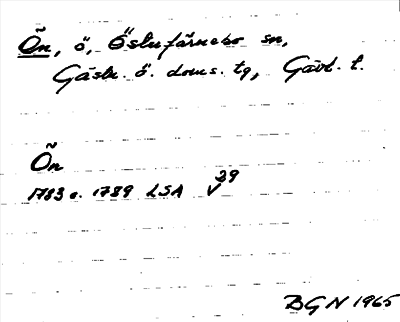 Õn, ö, Östufärnebo sn,
Gästr. ö. doms. tg, Gävl. l.
Õn
1783 o. 1789 LSA V 29
BGN 1965